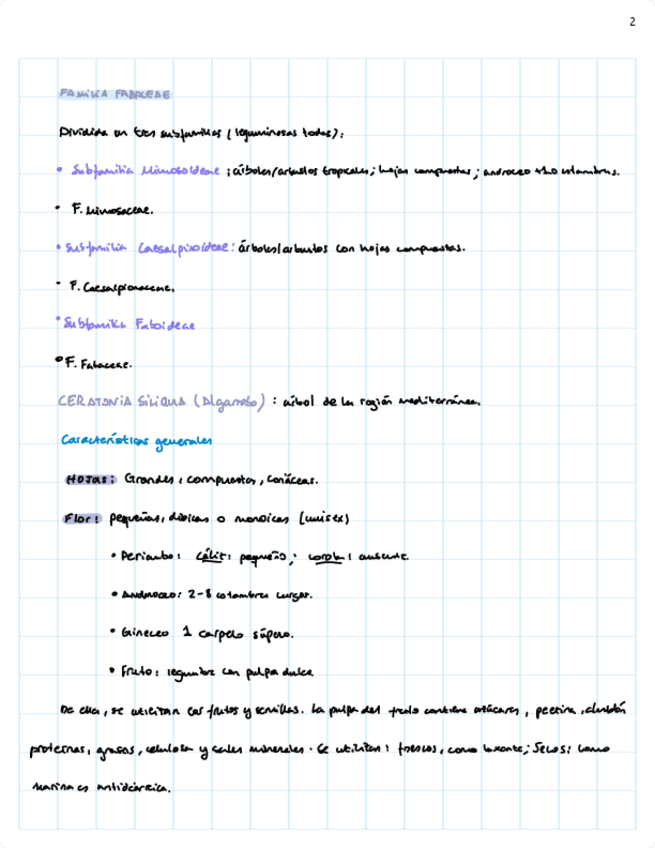 2
FAMILIA FABACEAE
Dividida en tres subfamilias (leguminosas todas):
• Subfamilia Mimosoideae: árboles/arbustos tropicales; hojas compuestas; androceo +10 estambres.
• F. Mimosaceae.
• Subfamilia Caesalpinoideae: árboles/arbustos con hojas compuestas.
• F. Caesalpionaceae.
• Subfamilia Faboideae
• F. Fabaceae.
CERATONIA SILIQUA (Algarrobo): árbol de la región mediterránea.
Características generales
HOJAS: Grandes, compuestas, coriáceas.
Flor: pequeñas, dioicas o monoicas (unisex)
• Perianto: cáliz: pequeño; corola: ausente.
• Androceo: 2-8 estambres largos.
• Gineceo 1 carpelo súpero.
• Fruto: legumbre con pulpa dulce
De ella, se utilizan los frutos y semillas. La pulpa del fruto contiene azúcares, pectina, almidón
proteínas, grasas, celulosa y sales minerales. Se utilizan: frescos, como laxante; Secos: como
harina es antidiarreica.